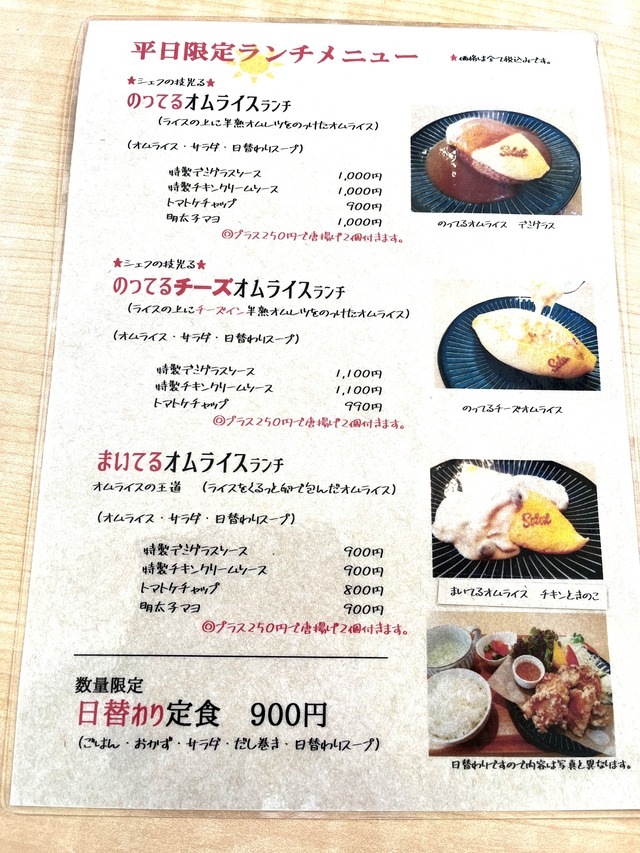 平日限定ランチメニュー
★価格は全て税込みです。
★シェフの技光る★
のってるオムライスランチ
(ライスの上に半熟オムレツをのっけたオムライス)
(オムライス・サラダ・日替わりスープ)
特製デミグラスソース 1,000円
特製チキンクリームソース 1,000円
トマトケチャップ 900円
明太子マヨ 1,000円
◎プラス250円で唐揚げ2個付きます。
のってるオムライス デミグラス
★シェフの技光る★
のってるチーズオムライスランチ
(ライスの上にチーズイン半熟オムレツをのっけたオムライス)
(オムライス・サラダ・日替わりスープ)
特製デミグラスソース 1,100円
特製チキンクリームソース 1,100円
トマトケチャップ 990円
◎プラス250円で唐揚げ2個付きます。
のってるチーズオムライス
まいてるオムライスランチ
オムライスの王道 (ライスをくるっと卵で包んだオムライス)
(オムライス・サラダ・日替わりスープ)
特製デミグラスソース 900円
特製チキンクリームソース 900円
トマトケチャップ 800円
明太子マヨ 900円
◎プラス250円で唐揚げ2個付きます。
まいてるオムライス チキンときのこ
数量限定
日替わり定食 900円
(ごはん・おかず・サラダ・だし巻き・日替わりスープ)
日替わりですので内容は写真と異なります。